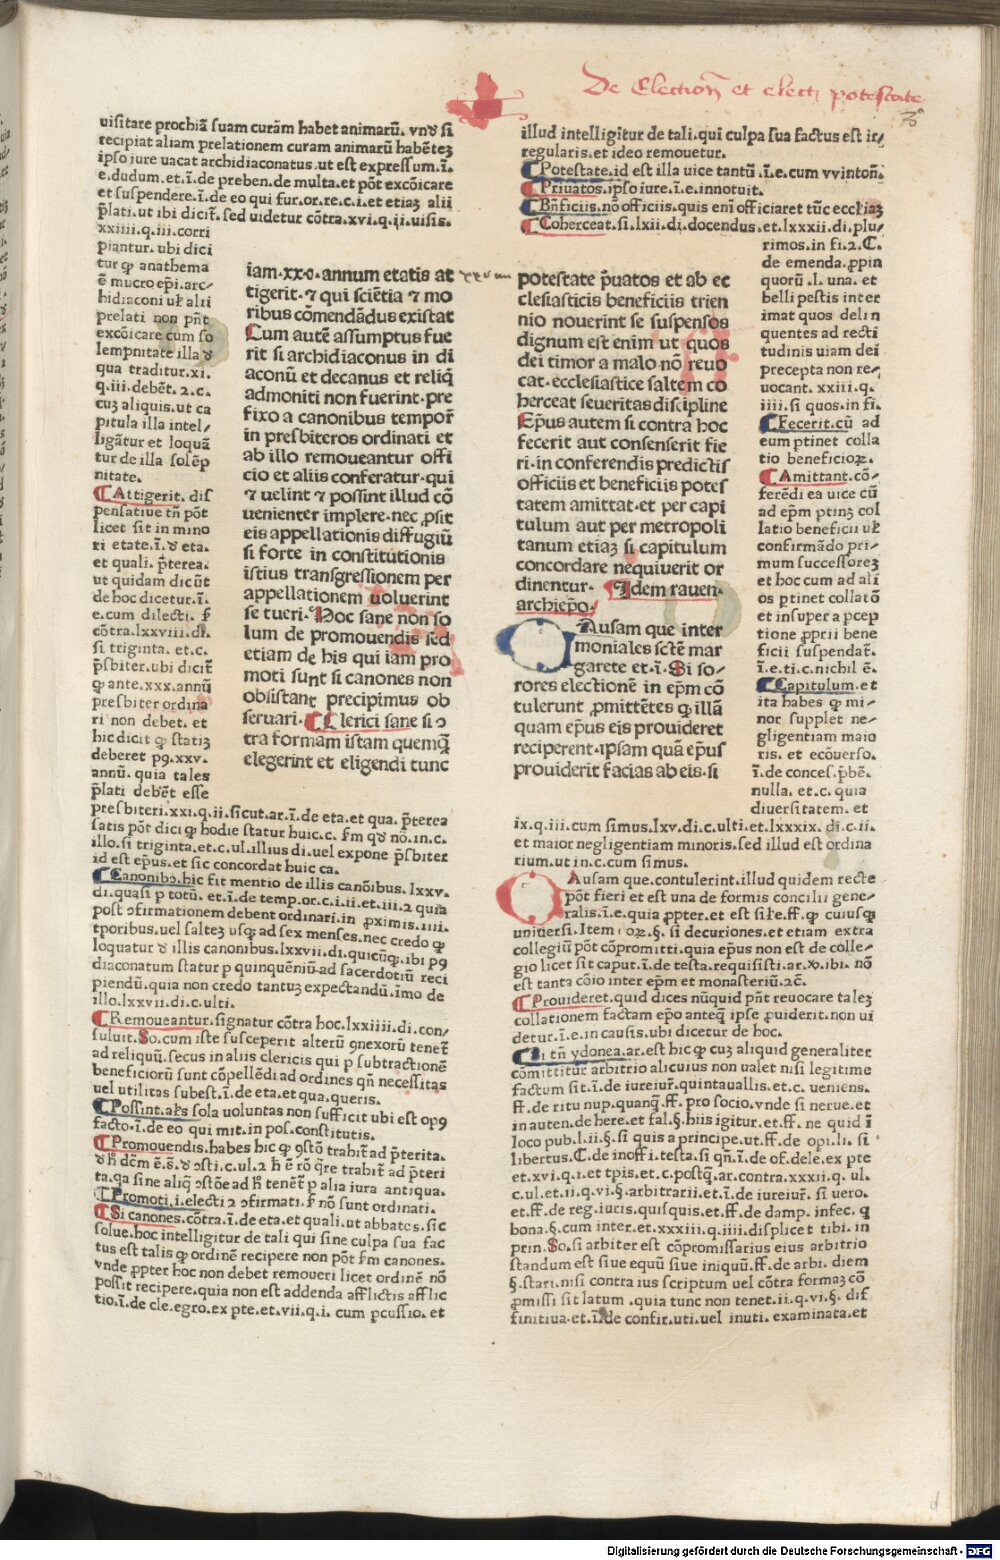 De Election̄ et elect̄ potestate
uisitare prochiā suam curām habet animarū. vnꝺ si
recipiat aliam prelationem curam animarū habētez
ipso iure uacat archidiaconatus.ut est expressum.ī.
e.dudum.et.ī.de preben.de multa.et pōt excōicare
et suspendere.ī.de eo qui fur.or.re.c.i.et etiaꝫ alii
p̄lati.ut ibi dicit̄. sed uidetur cōtra.xvi.q.ii.uisis.
xxiiii.q.iii.corri
piantur. ubi dici
tur ꝙ anathema
ē mucro ep̄i.arc-
hidiaconi ul̄ alii
prelati non pn̄t
excōicare cum so
lempnitate illa ꝺ
qua traditur.xi.
q.iii.debēt. 2.c.
cuꝫ aliquis.ut ca
pitula illa intel-
ligātur et loquā
tur de illa solēp
nitate.
Attigerit. dis
pensatiue tn̄ pōt
licet sit in mino
ri etate.ī.ꝺ eta.
et quali. p̄terea.
ut quidam dicūt
de hoc dicetur.ī.
e.cum dilecti. ꝭ
cōtra.lxxviii.di.
si triginta. et.c.
p̄sbiter.ubi dicit̄
ꝙ ante.xxx.annū
presbiter ordina
ri non debet. et
hic dicit ꝙ statiꝫ
deberet p9.xxv.
annū. quia tales
p̄lati debēt esse
presbiteri.xxi.q.ii.sicut.ar.ī.de eta.et qua. p̄terea
satis pōt dici ꝙ hodie statur huic.c. ꝭm qꝺ nō.in.c.
illo.si triginta.et.c.ul.illius di.uel expone p̄sbiter
id est ep̄us.et sic concordat huic ca.
Canonibꝫ.hic fit mentio de illis canōibus.lxxv.
di.quasi p totū. et.ī.de temp.or.c.i.ii.et.iii.2 quia
post ɔfirmationem debent ordinari.in ꝓximis.iiii.
tporibus.uel salteꝫ usꝙ ad sex menses.nec credo ꝙ
loquatur ꝺ illis canonibus.lxxvii.di.quicūꝙ.ibi p9
diaconatum statur p quinquēniū.ad sacerdotiū reci
piendū.quia non credo tantuꝫ expectandū.īmo de
illo.lxxvii.di.c.ulti.
Remoueantur.signatur cōtra hoc.lxxiiii.di.con-
suluit.So.cum iste susceperit alterū ɔnexorū tenet̄
ad reliquū.secus in aliis clericis qui p subtractionē
beneficiorū sunt cōpellēdi ad ordines qn̄ necessitas
uel utilitas subest.ī.de eta.et qua.queris.
Possint.al̄s sola uoluntas non sufficit ubi est op9
facto.ī.de eo qui mit.in pos.constitutis.
Promouendis.habes hic ꝙ ɔstō trahit̄ ad p̄terita.
ꝺ h̄ dc̄m ē.s̄.ꝺ ɔsti.c.ul.2 h̄ ē rō q̄re trahit̄ ad p̄teri
ta.qa sine aliꝙ ɔstōe ad h̄ tenet̄ p alia iura antiqua.
Promoti.i.electi 2 ɔfirmati. ꝭ nō sunt ordinati.
Si canones.cōtra.ī.de eta.et quali.ut abbates.sic
solue.hoc intelligitur de tali qui sine culpa sua fac
tus est talis ꝙ ordinē recipere non pōt ꝭm canones.
vnde ꝓpter hoc non debet remoueri licet ordinē nō
possit recipere.quia non est addenda afflictis afflic
tio.ī.de cle.egro.ex pte.et.vii.q.i. cum pcussio. et
iam.xxv.annum etatis at
xxvum
tigerit.⁊ qui sciētia ⁊ mo
ribus cōmendādus existat
Cum autē assumptus fue
rit si archidiaconus in di
aconū et decanus et reliq̄
admoniti non fuerint.pre
fixo a canonibus tempor̄
in presbiteros ordinati et
ab illo remoueantur offi
cio et aliis conferatur.qui
⁊ uelint ⁊ possint illud cō
uenienter implere.nec ꝓsit
eis appellationis diffugiū
si forte in constitutionis
istius transgressionem per
appellationem uoluerint
se tueri.Hoc sane non so
lum de promouendis sed
etiam de his qui iam pro
moti sunt si canones non
obsistant precipimus ob
seruari. Clerici sane si ɔ
tra formam istam quemq̄
elegerint et eligendi tunc
illud intelligitur de tali.qui culpa sua factus est ir-
regularis.et ideo remouetur.
Potestate.id est illa uice tantū.ī.e.cum vvinton̄.
Priuatos.ipso iure.ī.e.innotuit.
Bn̄ficiis.nō officiis.quis enī officiaret tūc eccl̄iaꝫ
Coherceat.si.lxii.di.docendus.et.lxxxii.di.plu-
rimos.in fi.2.C.
de emenda.ꝓpin
quorū .l. una. et
belli pestis inter
imat quos delin
quentes ad recti
tudinis uiam dei
precepta non re-
uocant. xxiii.q.
iiii.si quos.in fi.
Fecerit.cū ad
eum ptinet colla
tio beneficioꝝ.
Amittant.cō-
ferēdi ea uice cū
ad ep̄m ptinꝫ col
latio beneficii ul̄
confirmādo pri-
mum successoreꝫ
et hoc cum ad ali
os ptinet collatō
et insuper a pcep
tione ꝓprii bene
ficii suspendat̄.
ī.e.ti.c.nichil ē.
Capitulum.et
ita habes ꝙ mi-
nor supplet ne-
gligentiam maio
ris. et ecōuerso.
ī.de conces.p̄bē.
nulla. et.c. quia
diuersitatem. et
ix.q.iii.cum simus.lxv.di.c.ulti.et.lxxxix. di.c.ii.
et maior negligentiam minoris.sed illud est ordina
rium.ut in.c.cum simus.
potestate p̄uatos et ab ec
clesiasticis beneficiis trien
nio nouerint se suspensos
dignum est enim ut quos
dei timor a malo nō reuo
cat.ecclesiastice saltem co
herceat seueritas discipline
Ep̄us autem si contra hoc
fecerit aut consenserit fie
ri.in conferendis predictis
officiis et beneficiis potes
tatem amittat.et per capi
tulum aut per metropoli
tanum etiaꝫ si capitulum
concordare nequiuerit or
dinentur. Idem rauen.
archiep̄o.
Ausam que inter
moniales sc̄tē mar
garete et.ī. Si so-
rores electionē in ep̄m cō
tulerunt ꝓmittētes ꝙ illā
quam ep̄us eis prouideret
reciperent.ipsam quā ep̄us
prouiderit facias ab eis.si
Ausam que.contulerint.illud quidem recte
pōt fieri et est una de formis concilii gene-
ralis.ī.e.quia ꝓpter.et est sil̄e.ff.ꝙ cuiusꝙ
uniuersi.Item eoꝝ.§.si decuriones.et etiam extra
collegiū pōt cōpromitti.quia ep̄us non est de colle-
gio licet sit caput.ī.de testa.requisisti.ar.ꝯ.ibi. nō
est tanta cōio inter ep̄m et monasteriū.2c̄.
Prouideret.quid dices nūquid pn̄t reuocare taleꝫ
collationem factam ep̄o anteq̄ ipse ꝓuiderit.non ui
detur.ī.e.in causis.ubi dicetur de hoc.
Si tn̄ ydonea.ar.est hic ꝙ cuꝫ aliquid generaliter
cōmittitur arbitrio alicuius non ualet nisi legitime
factum sit.ī.de iureiur̄.quintauallis.et.c. ueniens.
ff.de ritu nup.quanq̄.ff. pro socio.vnde si nerue.et
in auten.de here.et fal.§.hiis igitur.et.ff. ne quid ī
loco pub.l.ii.§.si quis a principe.ut.ff.de opi.li. si
libertus.C.de inoffi.testa.si qn̄.ī.de of.dele.ex pte
et.xvi.q.i.et tpis.et.c.postq̄.ar.contra.xxxii.q. ul.
c.ul.et.ii.q.vi.§.arbitrarii.et.ī.de iureiur̄. si uero.
et.ff.de reg.iuris.quisquis.et.ff.de damp. infec. ꝙ
bona.§.cum inter.et.xxxiii.q.iiii.displicet tibi. in
prin.So.si arbiter est cōpromissarius eius arbitrio
standum est siue equū siue iniquū.ff.de arbi. diem
§.stari.nisi contra ius scriptum uel cōtra formaꝫ cō
ꝓmissi sit latum .quia tunc non tenet.ii.q.vi.§. dif
finitiua.et.ī.de confir.uti.uel inuti. examinata.et
d
Digitalisierung gefördert durch die Deutsche Forschungsgemeinschaft - DFG